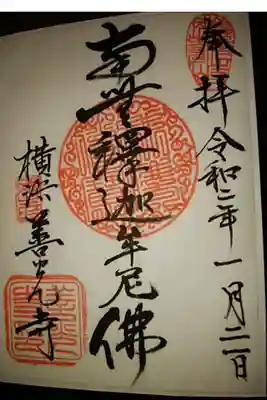 奉拝 令和二年一月二日
南無釋迦牟尼佛
横浜善光寺